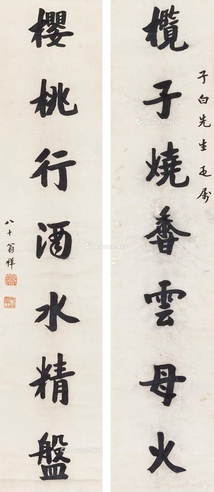 子白先生正属
欖子燒香雲母火
櫻桃行酒水精盤
八十翁樺